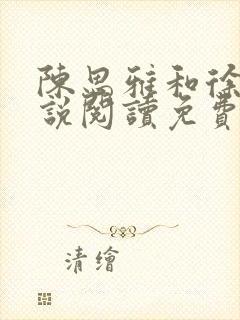 陳思雅和徐
說閱讀免費
清繪